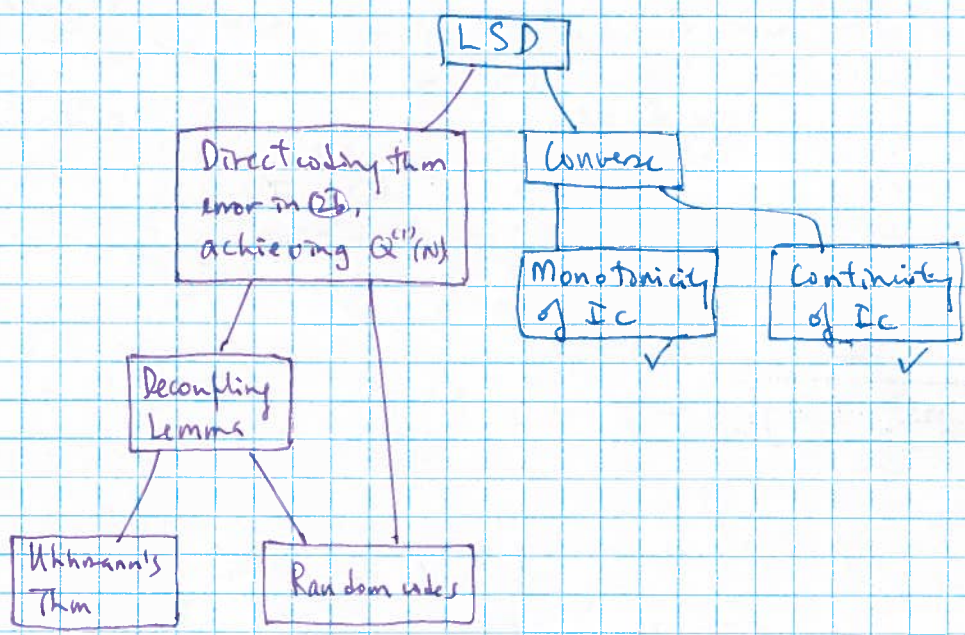 LSD
Direct coding thm
error in (2b),
achieving Q⁽¹⁾(N)
Converse
Monotonicity
of Ic
Continuity
of Ic
Decoupling
Lemma
Uhlmann's
Thm
Random codes